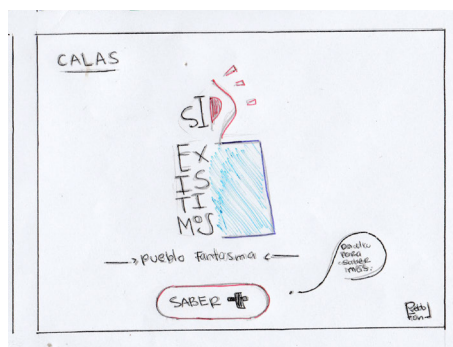 CALAS
SI
EX
IS
TI
MOS
pueblo Fantasma
SABER +
PARA
SABER
MÁS.